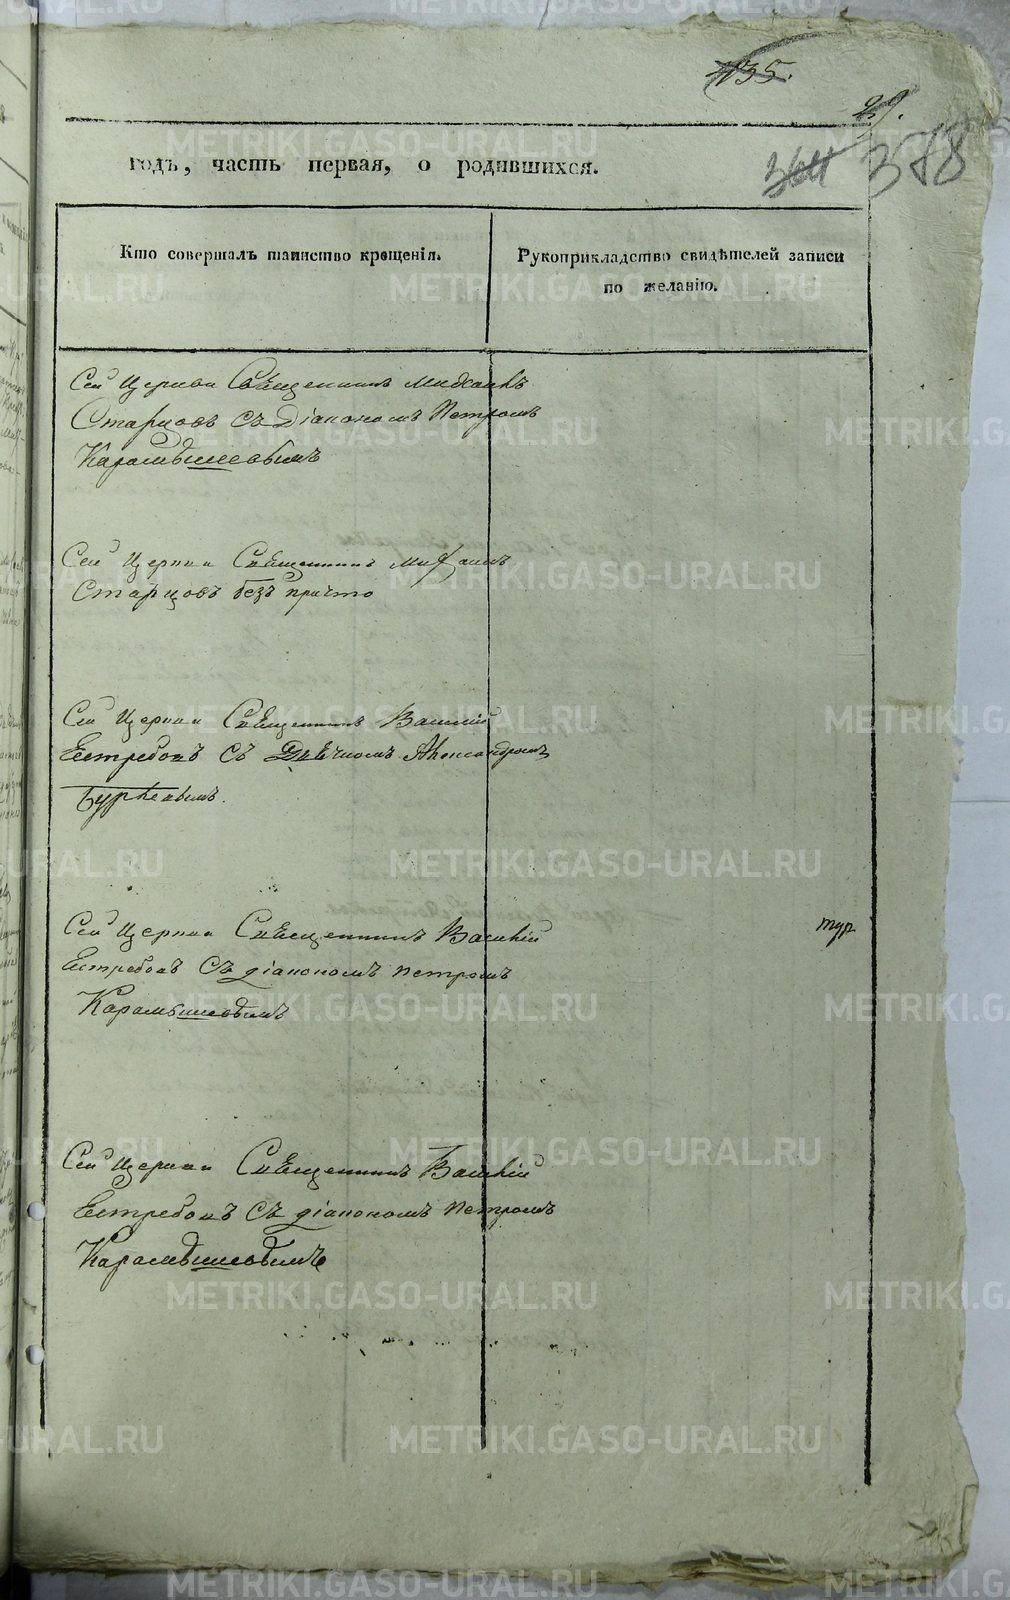 435.
29.
364 378
годъ, часть первая, о родившихся.
Кто совершалъ таинство крещенія.
Рукоприкладство свидѣтелей записи
по желанію.
Сей Церкви Священникъ Михаилъ
Старцовъ съ Діакономъ Петромъ
Карамышевымъ
Сей Церкви Священникъ Михаилъ
Старцовъ безъ причто
Сей Церкви Священникъ Василій
Естребовъ съ Дьячкомъ Александромъ
Сей Церкви Священникъ Василій
Естребовъ Съ діакономъ Петромъ
Карамышевымъ
Сей Церкви Священникъ Василій
Естребовъ Съ діакономъ Петромъ
Карамышевымъ
METRIKI.GASO-URAL.RU